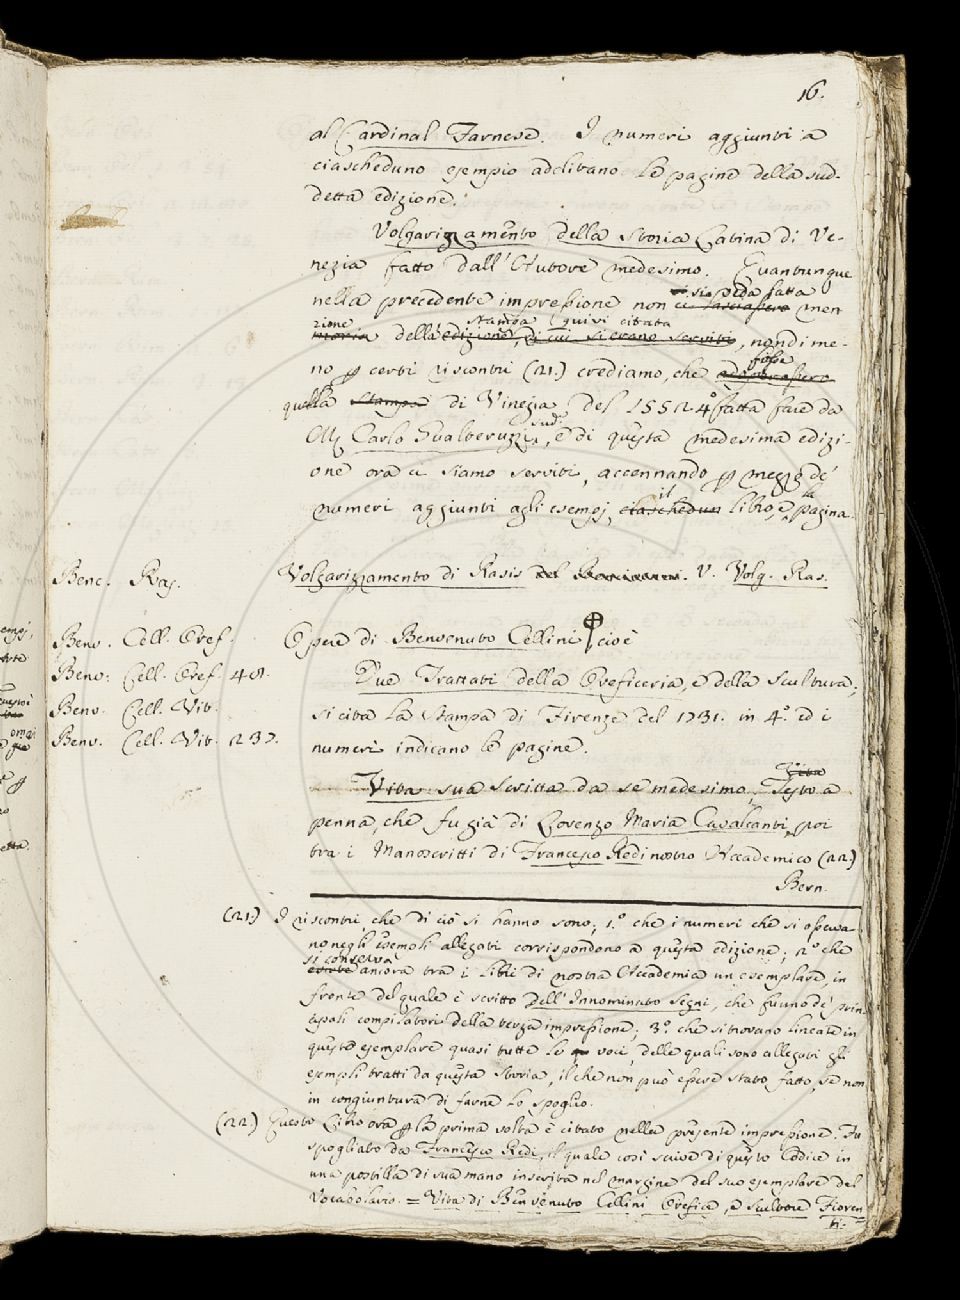 16.
al Cardinal Farnese. I numeri aggiunti a
ciascheduno esempio additano le pagine della sud-
detta edizione.
Volgarizzamento della Storia Latina di Ve-
nezia fatto dall'Autore medesimo. Quantunque
si veda fatta
nella precedente impressione non ci lasciassero men
zione stampa quivi citata
moria della edizione, di cui si erano serviti, nondime-
fosse
no p certi riscontri (21.) crediamo, che adoprassero
quella stampa di Vinegia del 1552 4.° fatta fare da
sud.
M. Carlo Gualteruzzi, e di questa medesima edizi-
one ora ci siamo serviti, accennando p mezzo de'
il la
numeri aggiunti agli esempj, ciaschedun libro, e pagina.
Benc. Ras. Volgarizzamento di Rasis del V. Volg. Ras.
Benv. Cell. Oref. Opere di Benvenuto Cellini cioè
Benv. Cell. Oref. 48. Due Trattati della Oreficeria, e della Scultura;
Benv. Cell. Vit. si cita la Stampa di Firenze del 1731. in 4.° ed i
Benv. Cell. Vit. 237. numeri indicano le pagine.
Vita
Vita sua scritta da se medesimo. Testo a
penna, che fu già di Lorenzo Maria Cavalcanti, poi
tra i Manoscritti di Francesco Redi nostro Accademico (22.)
Bern.
(21.) I riscontri, che di ciò si hanno sono; 1.° che i numeri che si osserva-
no negli esempli allegati corrispondono a questa edizione; 2.° che
si conserva
esiste ancora tra i Libri di nostra Accademia un esemplare, in
fronte del quale è scritto dell'Innominato Segni, che fu uno de' prin
cipali compilatori della terza impressione; 3.° che si trovano lineate in
questo esemplare quasi tutte le voci, delle quali sono allegati gli
esempli tratti da questa Storia, il che non può essere stato fatto, se non
in congiuntura di farne lo spoglio.
(22.) Questo Libro ora p la prima volta è citato nella presente impressione. Fu
spogliato da Francesco Redi, il quale così scrive di questo Codice in
una postilla di sua mano inserita nel margine del suo esemplare del
Vocabolario. = Vita di Benvenuto Cellini Orefice, e Scultore Fioren
ti-